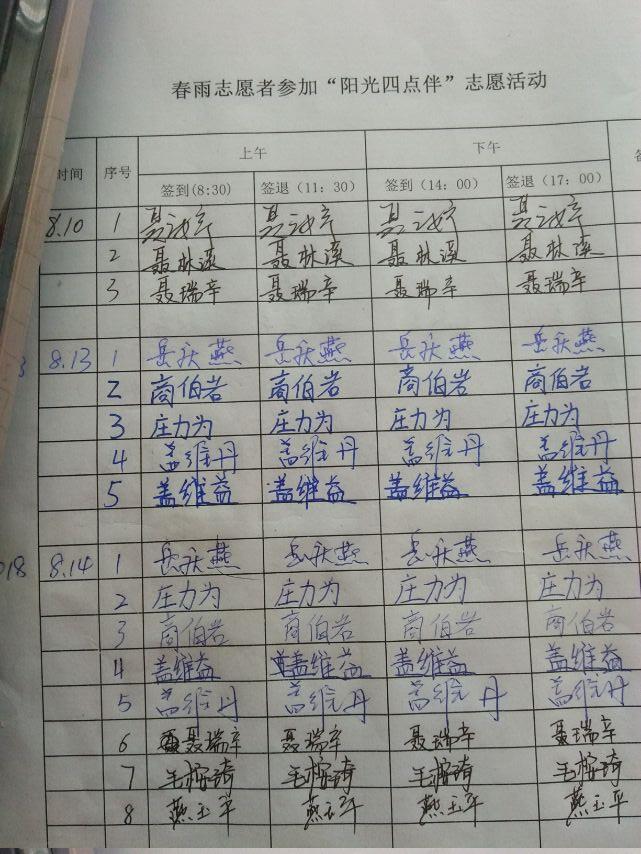 春雨志愿者参加“阳光四点伴”志愿活动
时间 序号 上午 下午
签到(8:30) 签退（11：30） 签到（14：00） 签退（17：00）
8.10 1
2 聂林溪 聂林溪 聂林溪 聂林溪
3 聂瑞辛 聂瑞辛 聂瑞辛 聂瑞辛
8.13 1 岳秋燕 岳秋燕 岳秋燕 岳秋燕
2 商伯岩 商伯岩 商伯岩 商伯岩
3 庄力为 庄力为 庄力为 庄力为
4 盖维丹 盖维丹 盖维丹 盖维丹
5 盖维益 盖维益 盖维益 盖维益
018 8.14 1 岳秋燕 岳秋燕 岳秋燕 岳秋燕
2 庄力为 庄力为 庄力为 庄力为
3 商伯岩 商伯岩 商伯岩 商伯岩
4 盖维益 盖维益 盖维益 盖维益
5 盖维丹 盖维丹 盖维丹 盖维丹
6 聂瑞辛 聂瑞辛 聂瑞辛 聂瑞辛
7
8 燕玉平 燕玉平 燕玉平 燕玉平